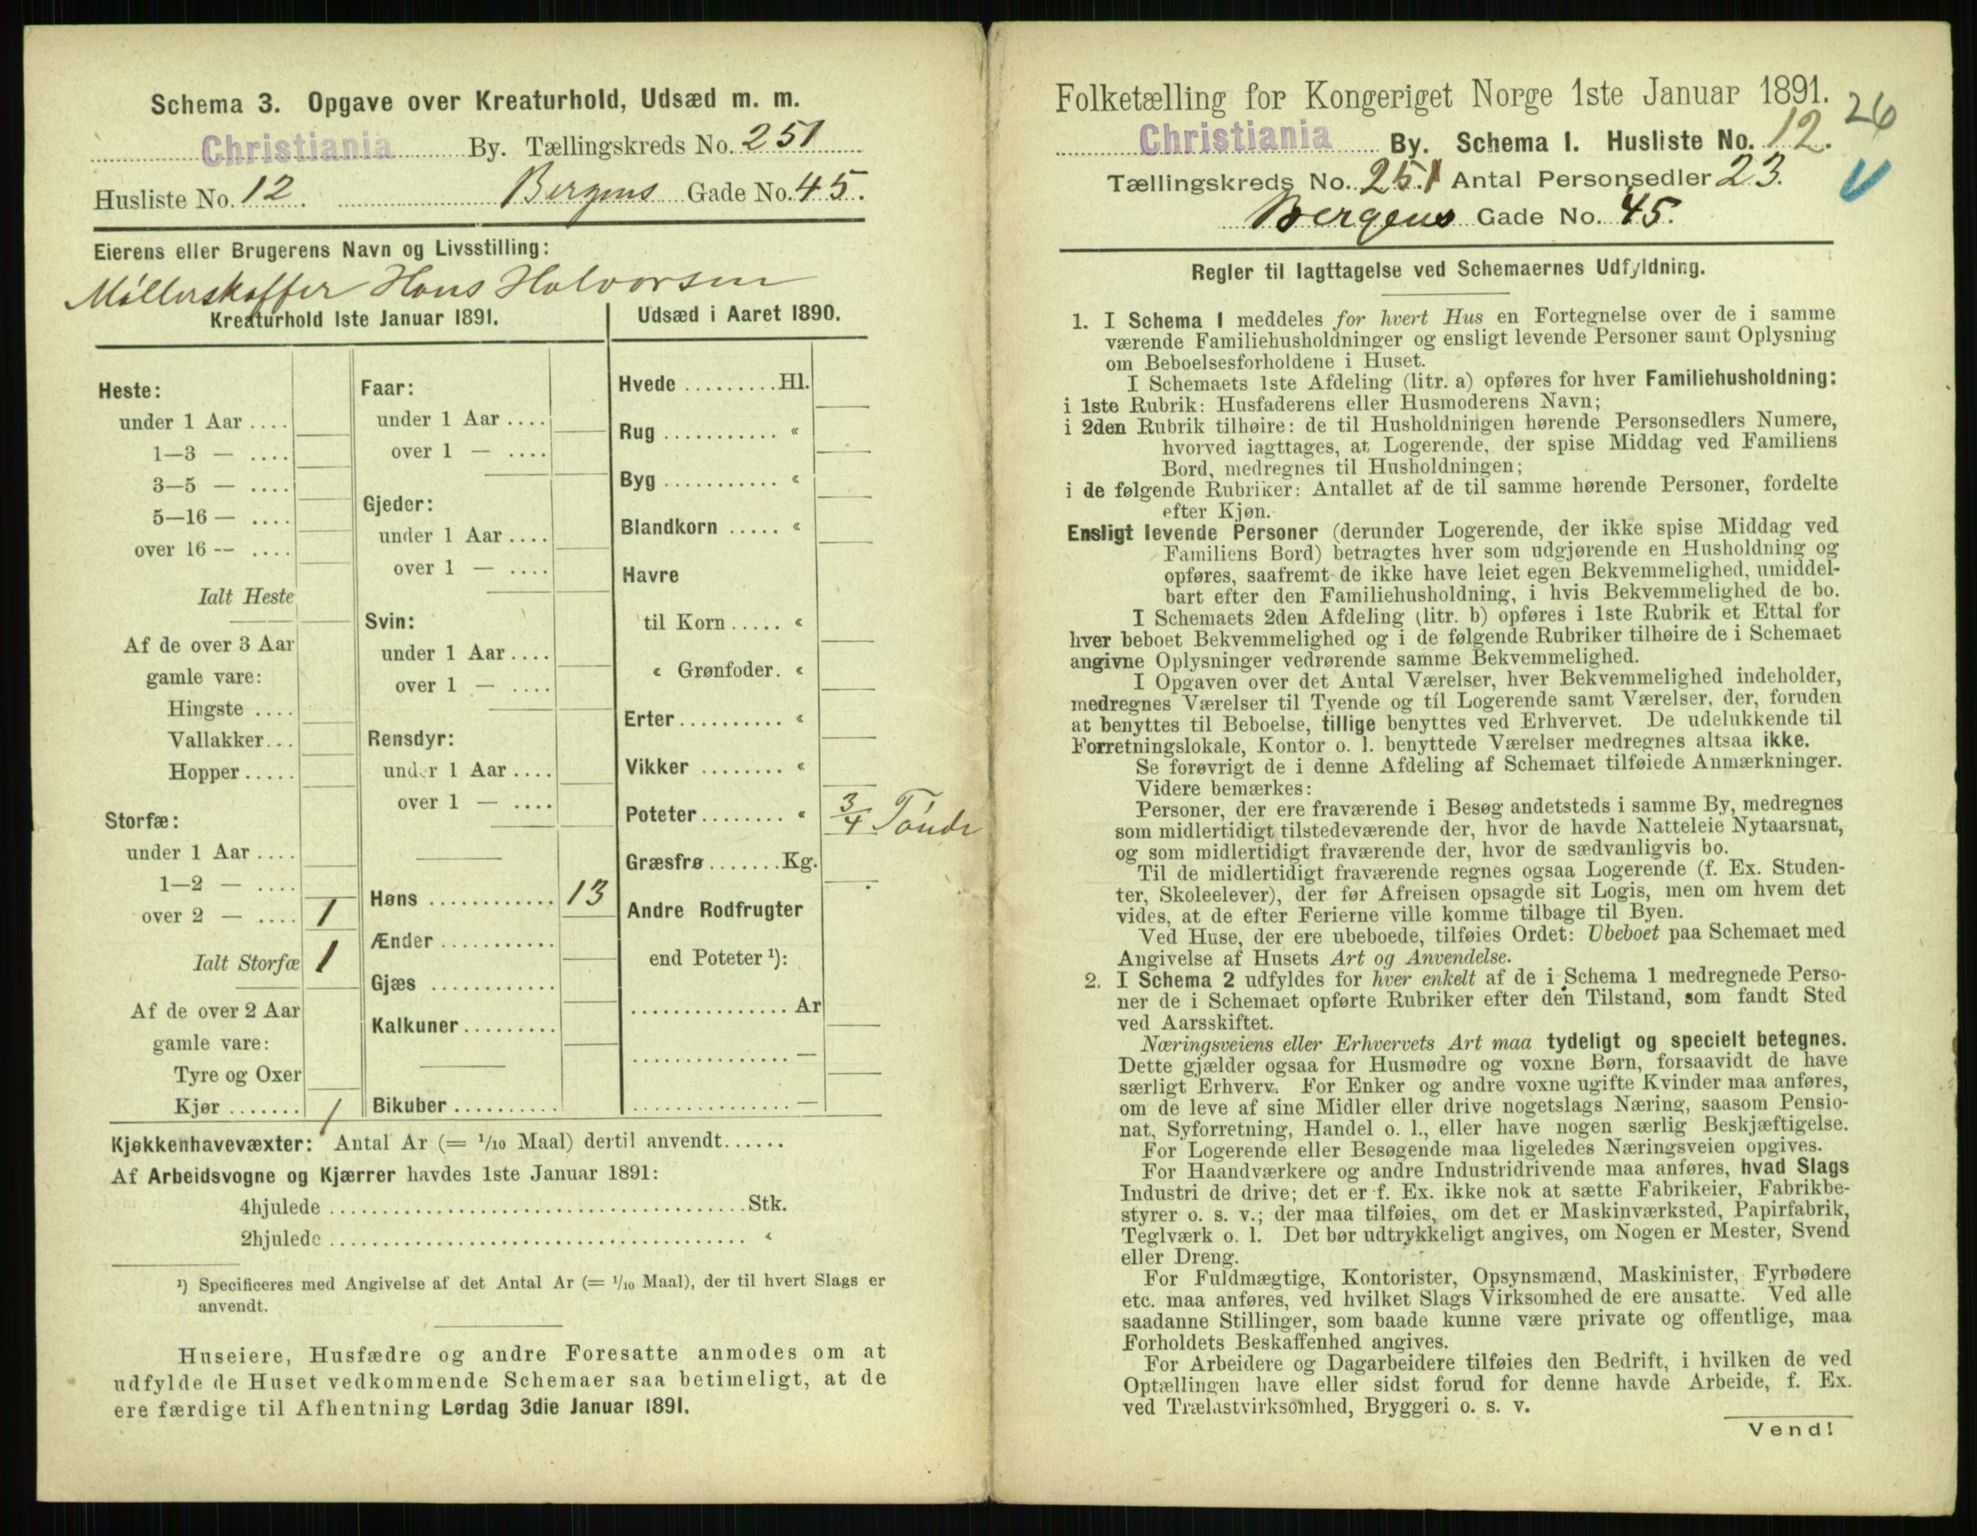 Schema 3. Opgave over Kreaturhold, Udsæd m. m.
Christiania By. Tællingskreds No. 251
Husliste No. 12. Bergens Gade No. 45.
Eierens eller Brugerens Navn og Livsstilling:
Møllerskaffer Hans Halvorsen
Kreaturhold 1ste Januar 1891.
Heste:
under 1 Aar ....
1—3 — ....
3—5 — ....
5—16 — ....
over 16 -- ....
Ialt Heste
Af de over 3 Aar
gamle vare:
Hingste ....
Vallakker...
Hopper.....
Storfæ:
under 1 Aar ....
1—2 — ....
over 2 — .... 1
Ialt Storfæ 1
Af de over 2 Aar
gamle vare:
Tyre og Oxer
Kjør ....... 1
Faar:
under 1 Aar ....
over 1 — ....
Gjeder:
under 1 Aar ....
over 1 — ....
Svin:
under 1 Aar ....
over 1 — ....
Rensdyr:
under 1 Aar ....
over 1 — ....
Høns ............ 13
Ænder ...........
Gjæs ............
Kalkuner.........
Bikuber ..........
Udsæd i Aaret 1890.
Hvede .........Hl.
Rug ........... «
Byg ........... «
Blandkorn ..... «
Havre
til Korn ..... «
« Grønfoder. «
Erter .......... «
Vikker ........ «
Poteter ........ « 3/4 Tønde
Græsfrø .......Kg.
Andre Rodfrugter
end Poteter ¹):
............... Ar
............... —
............... —
Kjøkkenhavevæxter: Antal Ar (= 1/10 Maal) dertil anvendt......
Af Arbeidsvogne og Kjærrer havdes 1ste Januar 1891:
4hjulede ....................................Stk.
2hjulede .................................... «
¹) Specificeres med Angivelse af det Antal Ar (= 1/10 Maal), der til hvert Slags er
anvendt.
Huseiere, Husfædre og andre Foresatte anmodes om at
udfylde de Huset vedkommende Schemaer saa betimeligt, at de
ere færdige til Afhentning Lørdag 3die Januar 1891.
Folketælling for Kongeriget Norge 1ste Januar 1891.
26
Christiania By. Schema I. Husliste No. 12.
Tællingskreds No. 251 Antal Personsedler 23.
Bergens Gade No. 45.
Regler til Iagttagelse ved Schemaernes Udfyldning.
1. I Schema 1 meddeles for hvert Hus en Fortegnelse over de i samme
værende Familiehusholdninger og ensligt levende Personer samt Oplysning
om Beboelsesforholdene i Huset.
I Schemaets 1ste Afdeling (litr. a) opføres for hver Familiehusholdning:
i 1ste Rubrik: Husfaderens eller Husmoderens Navn;
i 2den Rubrik tilhøire: de til Husholdningen hørende Personsedlers Numere,
hvorved iagttages, at Logerende, der spise Middag ved Familiens
Bord, medregnes til Husholdningen;
i de følgende Rubriker: Antallet af de til samme hørende Personer, fordelte
efter Kjøn.
Ensligt levende Personer (derunder Logerende, der ikke spise Middag ved
Familiens Bord) betragtes hver som udgjørende en Husholdning og
opføres, saafremt de ikke have leiet egen Bekvemmelighed, umiddel-
bart efter den Familiehusholdning, i hvis Bekvemmelighed de bo.
I Schemaets 2den Afdeling (litr. b) opføres i 1ste Rubrik et Ettal for
hver beboet Bekvemmelighed og i de følgende Rubriker tilhøire de i Schemaet
angivne Oplysninger vedrørende samme Bekvemmelighed.
I Opgaven over det Antal Værelser, hver Bekvemmelighed indeholder,
medregnes Værelser til Tyende og til Logerende samt Værelser, der, foruden
at benyttes til Beboelse, tillige benyttes ved Erhvervet. De udelukkende til
Forretningslokale, Kontor o. l. benyttede Værelser medregnes altsaa ikke.
Se forøvrigt de i denne Afdeling af Schemaet tilføiede Anmærkninger.
Videre bemærkes:
Personer, der ere fraværende i Besøg andetsteds i samme By, medregnes
som midlertidigt tilstedeværende der, hvor de havde Natteleie Nytaarsnat,
og som midlertidigt fraværende der, hvor de sædvanligvis bo.
Til de midlertidigt fraværende regnes ogsaa Logerende (f. Ex. Studen-
ter, Skoleelever), der før Afreisen opsagde sit Logis, men om hvem det
vides, at de efter Ferierne ville komme tilbage til Byen.
Ved Huse, der ere ubeboede, tilføies Ordet: Ubeboet paa Schemaet med
Angivelse af Husets Art og Anvendelse.
2. I Schema 2 udfyldes for hver enkelt af de i Schema 1 medregnede Perso-
ner de i Schemaet opførte Rubriker efter den Tilstand, som fandt Sted
ved Aarsskiftet.
Næringsveiens eller Erhvervets Art maa tydeligt og specielt betegnes.
Dette gjælder ogsaa for Husmødre og voxne Børn, forsaavidt de have
særligt Erhverv. For Enker og andre voxne ugifte Kvinder maa anføres,
om de leve af sine Midler eller drive nogetslags Næring, saasom Pensio-
nat, Syforretning, Handel o. l., eller have nogen særlig Beskjæftigelse.
For Logerende eller Besøgende maa ligeledes Næringsveien opgives.
For Haandværkere og andre Industridrivende maa anføres, hvad Slags
Industri de drive; det er f. Ex. ikke nok at sætte Fabrikeier, Fabrikbe-
styrer o. s. v.; der maa tilføies, om det er Maskinværksted, Papirfabrik,
Teglværk o. l. Det bør udtrykkeligt angives, om Nogen er Mester, Svend
eller Dreng.
For Fuldmægtige, Kontorister, Opsynsmænd, Maskinister, Fyrbødere
etc. maa anføres, ved hvilket Slags Virksomhed de ere ansatte. Ved alle
saadanne Stillinger, som baade kunne være private og offentlige, maa
Forholdets Beskaffenhed angives.
For Arbeidere og Dagarbeidere tilføies den Bedrift, i hvilken de ved
Optællingen have eller sidst forud for denne havde Arbeide, f. Ex.
ved Trælastvirksomhed, Bryggeri o. s. v.
Vend!